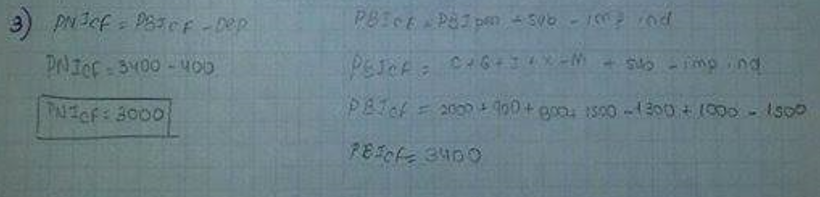 3) PNIcf = PBIcf - Dep
PNIcf = 3400 - 400
PNIcf = 3000
PBIcf = PBIpm + sub - imp ind
PBIcf = C + G + I + X - M + sub - imp ind
PBIcf = 2000 + 900 + 800 + 1500 - 1300 + 1000 - 1500
PBIcf = 3400